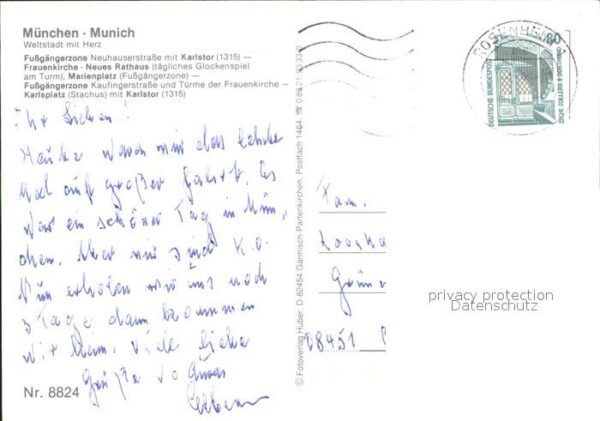 München · Munich
Weltstadt mit Herz
Fußgängerzone Neuhauserstraße mit Karlstor (1315) —
Frauenkirche - Neues Rathaus (tägliches Glockenspiel
am Turm), Marienplatz (Fußgängerzone) —
Fußgängerzone Kaufingerstraße und Türme der Frauenkirche -
Karlsplatz (Stachus) mit Karlstor (1315)
Ihr Lieben!
Heute waren wir das letzte
Mal auf großer Fahrt. Es
war ein schöner Tag in Mün,
chen. Aber wir sind K.O.
Nun erholen wir uns noch
3 Tage dann kommen
wir heim. Viele liebe
Grüße
Nr. 8824
© Fotoverlag Huber, D-82454 Garmisch-Partenkirchen, Postfach 1464,
ROSENHEIM 1
80
DEUTSCHE BUNDESPOST
ZECHE ZOLLERN II DORTMUND
Fam.
08451
privacy protection
Datenschutz